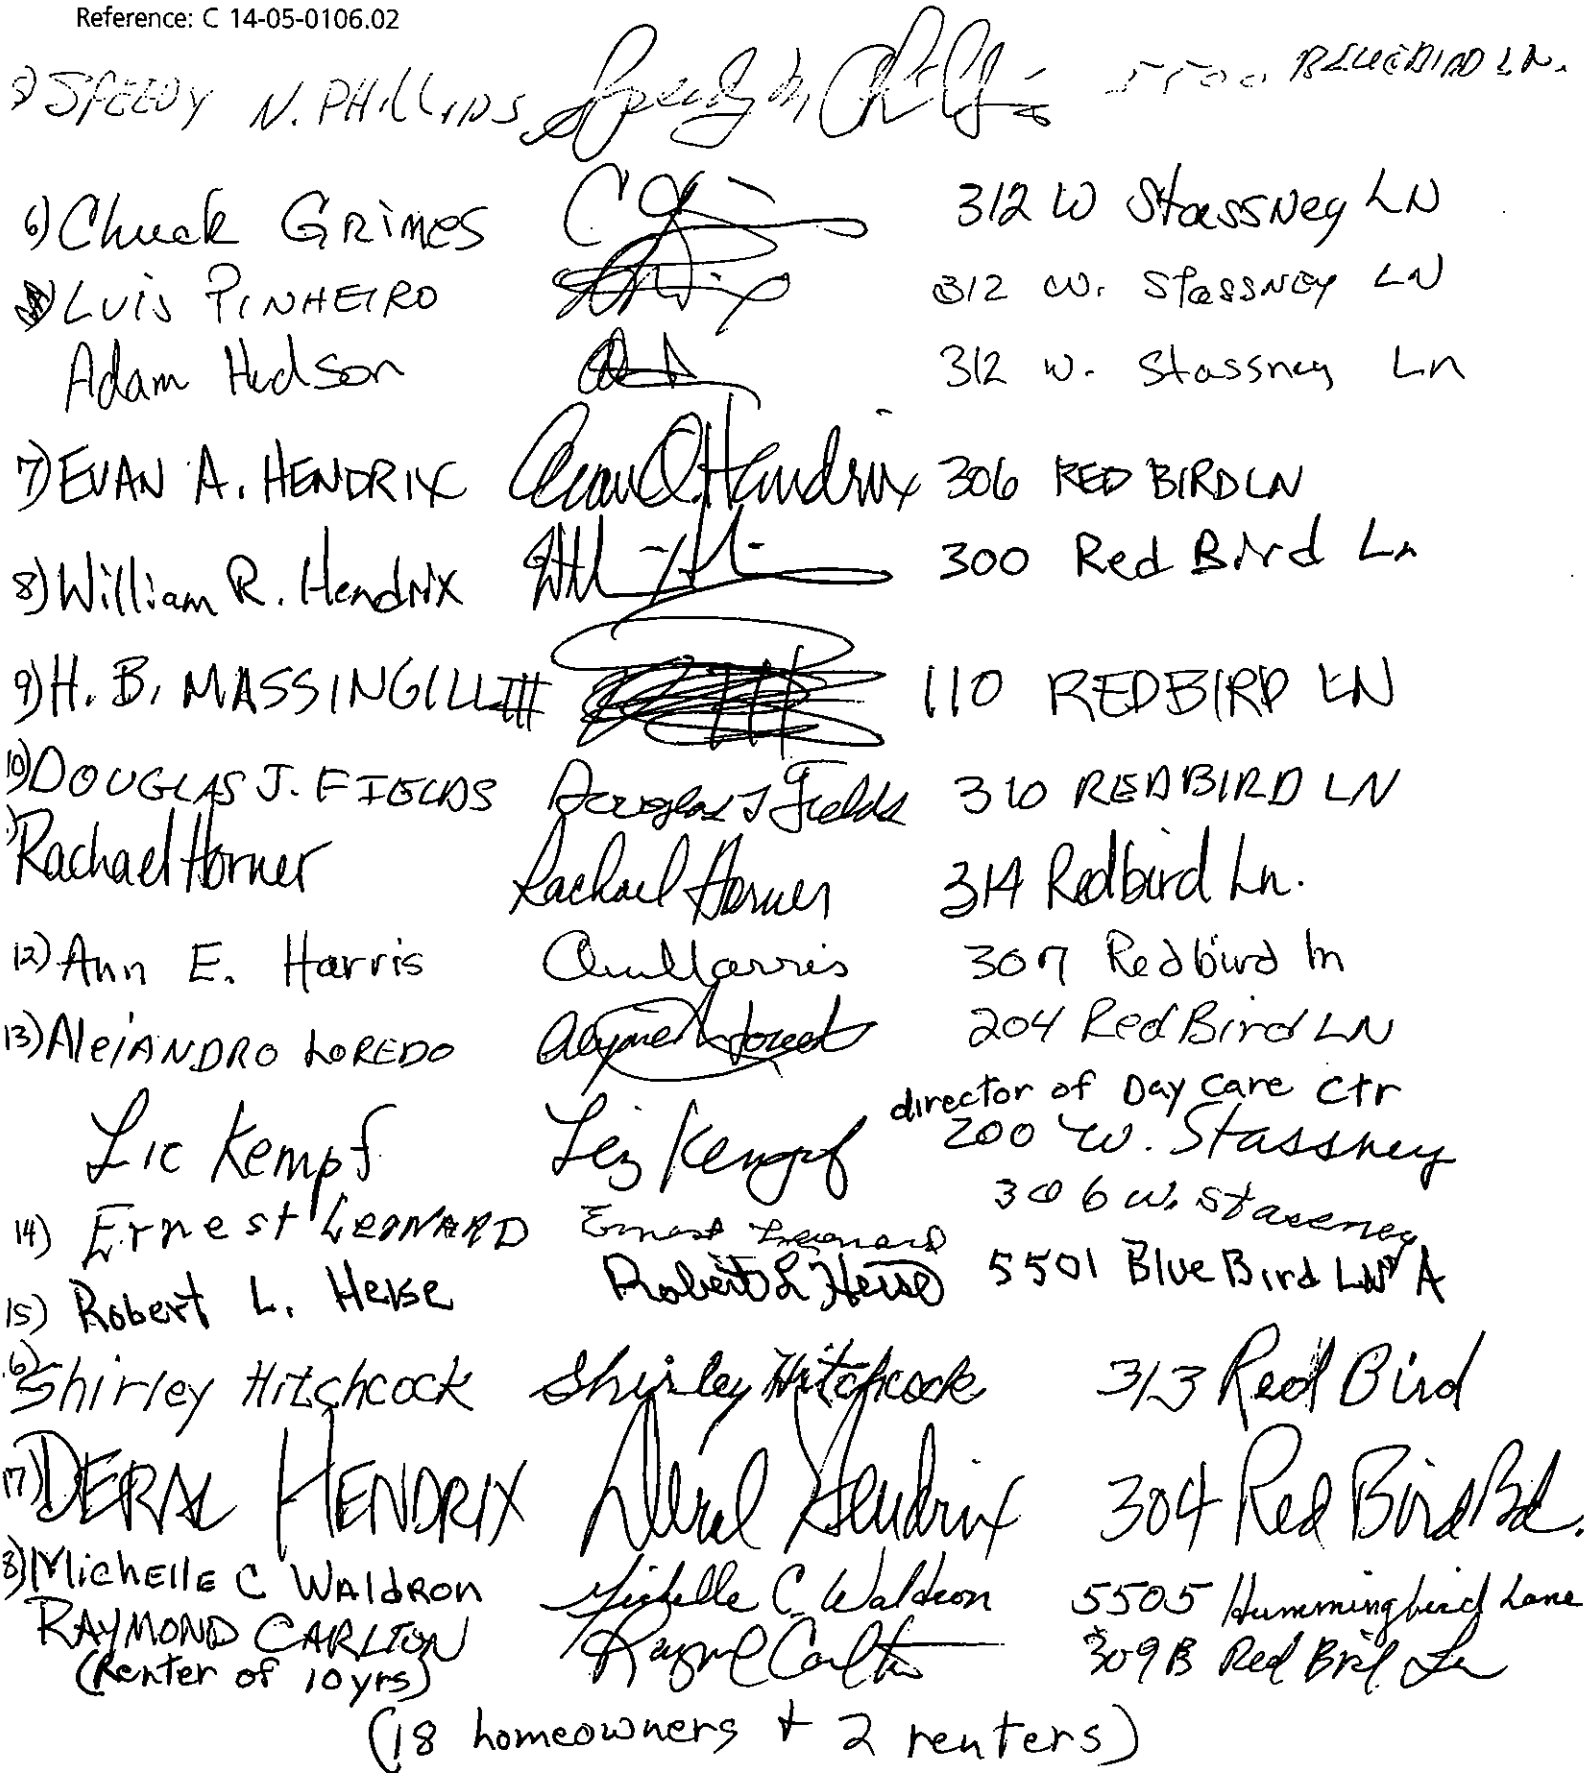 Reference: C 14-05-0106.02
SPEEDY N. PHILLIPS Speedy N. Phillips 5500 BLUEBIRD LN.
6) Chuck GRIMES 312 W Stassney LN
LUIS PINHEIRO 312 W. STASSNEY LN
Adam Hudson 312 W. Stassney Ln
7) EVAN A. HENDRIX Evan A. Hendrix 306 RED BIRD LN
8) William R. Hendrix 300 Red Bird Ln
9) H. B. MASSINGILL III 110 REDBIRD LN
10) DOUGLAS J. FIELDS Douglas J Fields 310 REDBIRD LN
Rachael Horner Rachael Horner 314 Redbird Ln.
12) Ann E. Harris Ann Harris 307 Redbird ln
13) AleJANDRO LOREDO 204 Red Bird LN
director of Day Care Ctr
Liz Kempf Liz Kempf 200 W. Stassney
14) Ernest LEONARD Ernest Leonard 306 W. Stassney
15) Robert L. Heise Robert L Heise 5501 Blue Bird LN A
16) Shirley Hitchcock Shirley Hitchcock 313 Red Bird
17) DERAL HENDRIX Deral Hendrix 304 Red Bird Rd.
8) MichEllE C WAldRon Michelle C. Waldron 5505 Hummingbird Lane
RAYMOND CARLTON Raymond Carlton 309 B Red Bird Ln
(Renter of 10 yrs)
(18 homeowners + 2 renters)